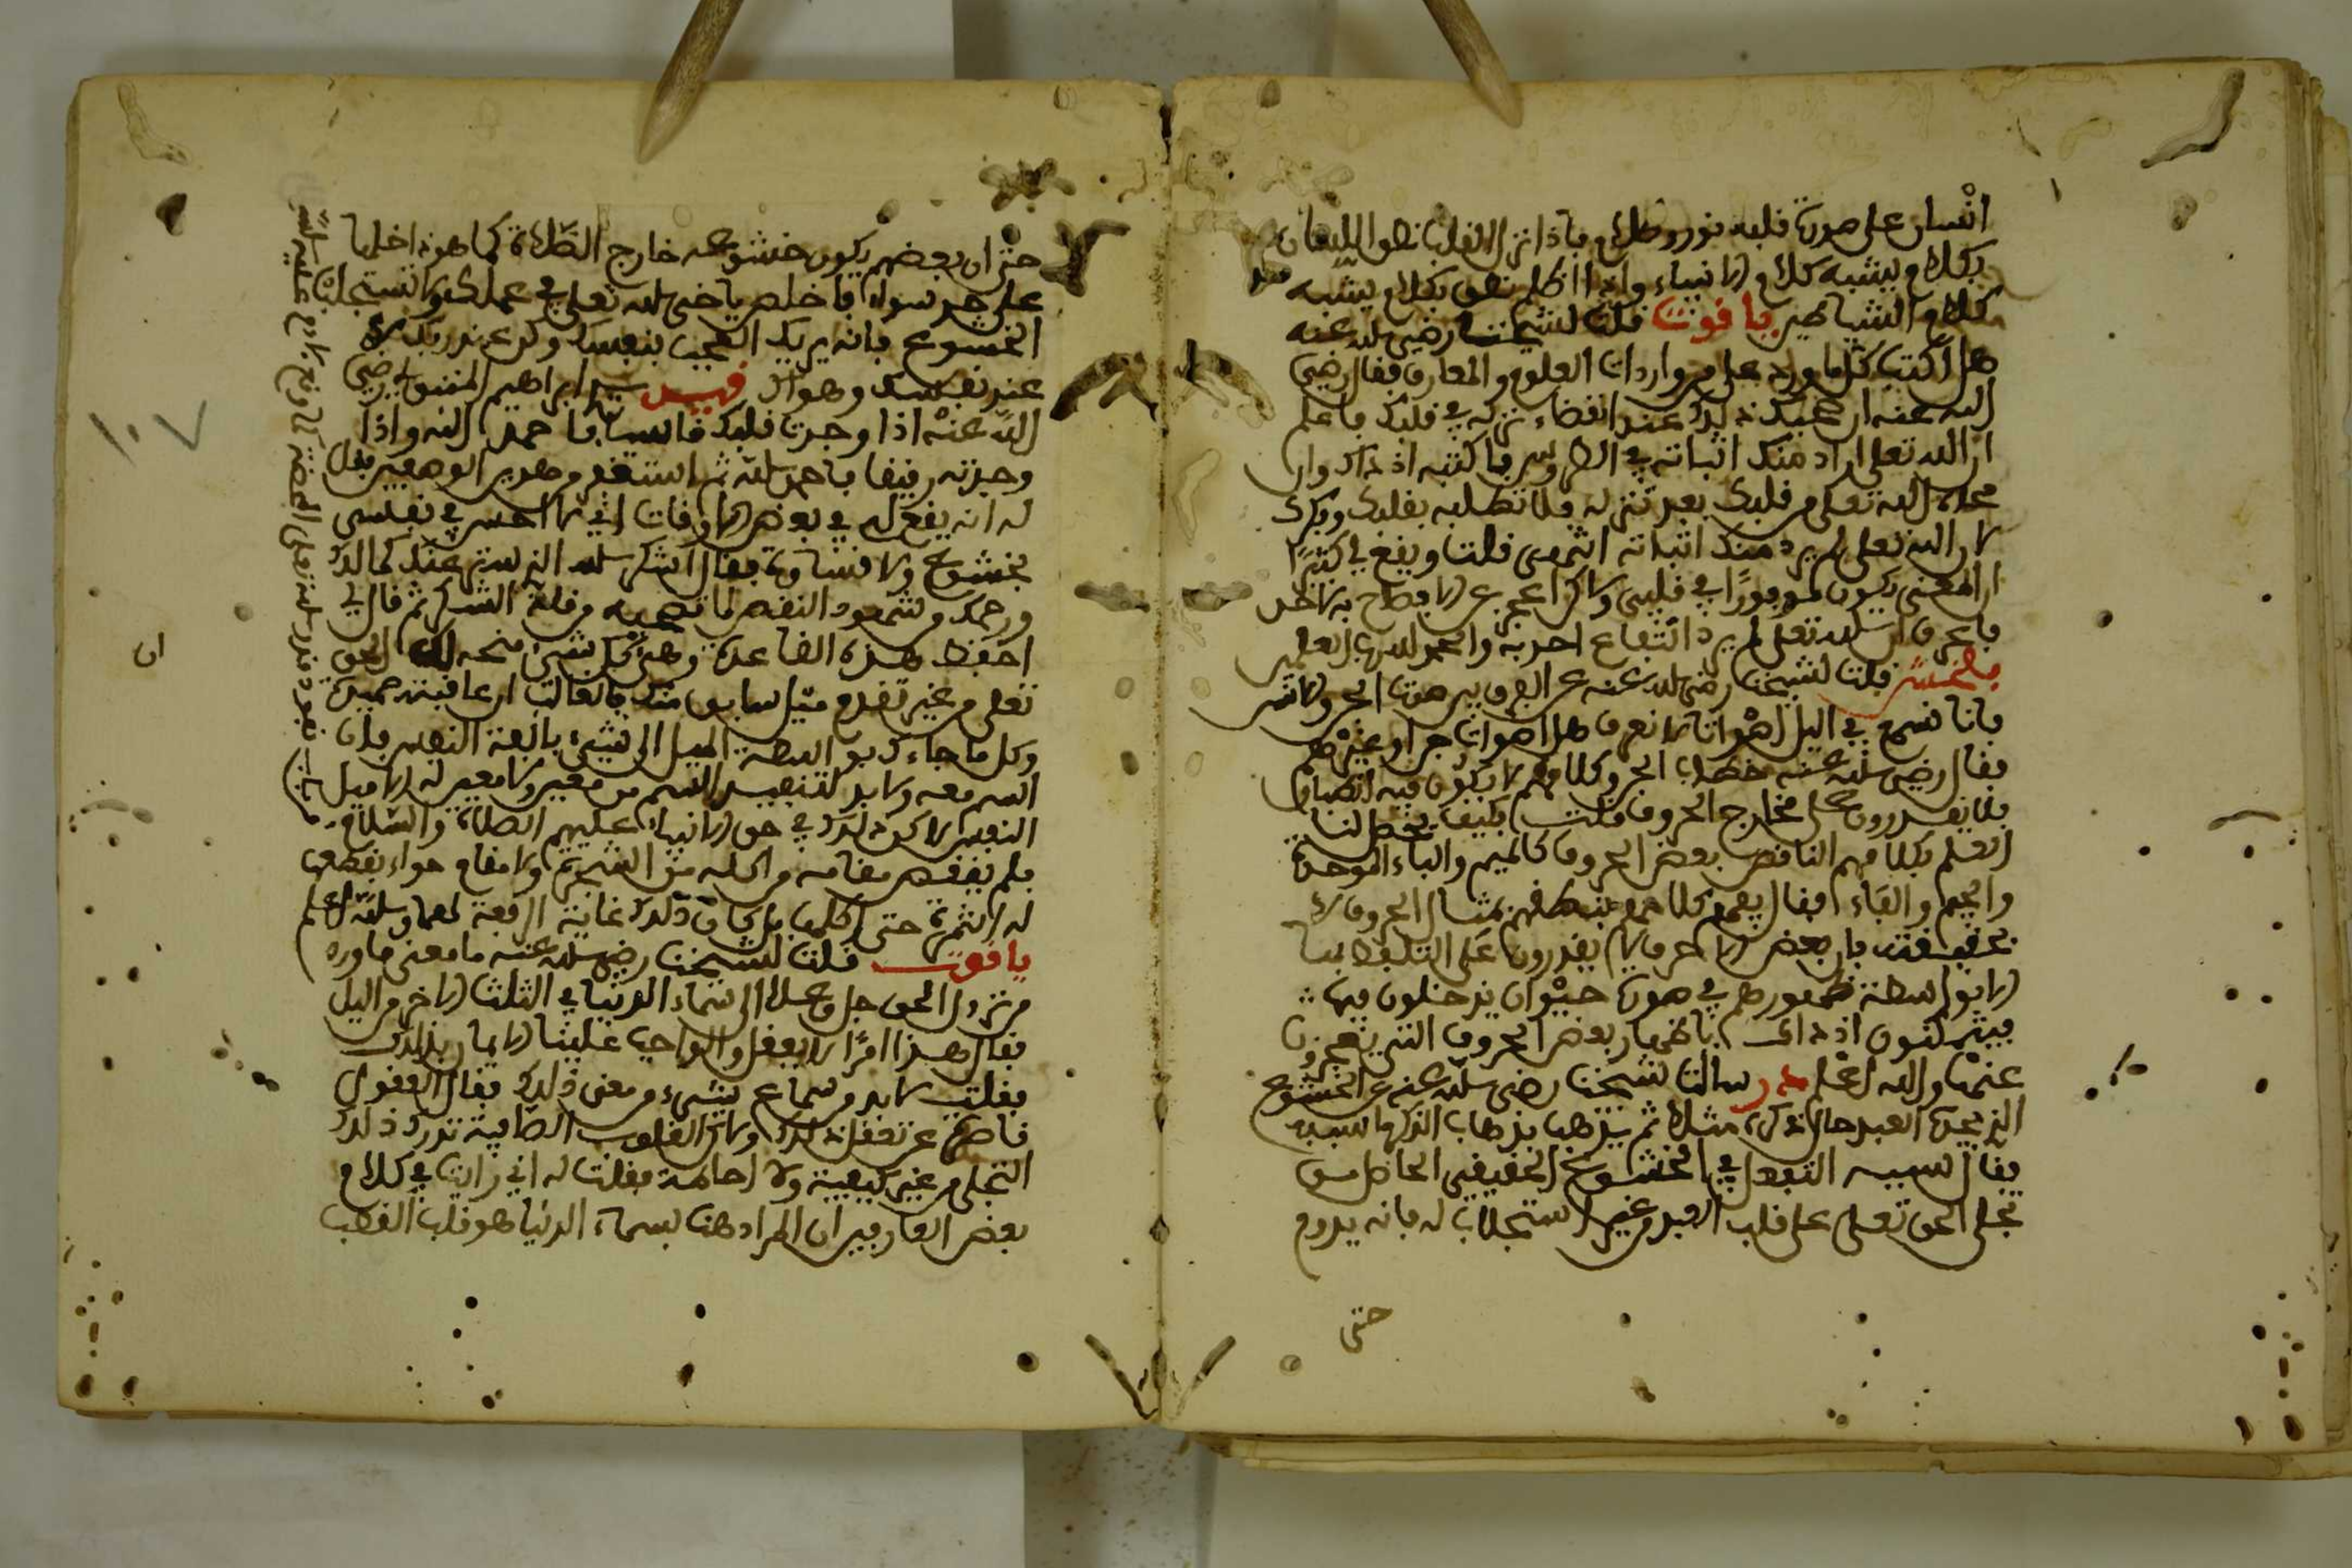 انسان على صورة قلبه نور وظلام فاذا نار القلب نطق اللسان
بكلام يشبه كلام الانبياء واذا اظلم نطق بكلام يشبه
كلام الشياطين ياقوت قلت لشيخنا رضي الله عنه
هل اكتب كل ما ورد علي من واردات العلوم والمعارف فقال رضي
الله عنه ان عندك ذلك عند انقضاء نزله في قلبك فاعلم
ان الله تعلى اراد منك اثباته في الطروس فاكتبه اذ ذاك وان
محاه الله تعلى من قلبك بعد تنزله فلا تطلبه بقلبك وفكرك
لان الله تعلى لم يرد منك اثباته انتهى قلت ويقع لي كثيرا
ان المعنى يكون موفورا في قلبي ولاكن اعجز عن الافصاح به لاحد
فاعرف ان الله تعلى لم يرد انتفاع احد به والحمد لله رب العلمين
بلخش قلت لشيخنا رضي الله عنه عن الفرق بين صوت الجن والانس
فانا نسمع في اليل اصواتا لا نعرف هل اصوات جن او غيرهم
فقال رضي الله عنه خطاب الجن وكلامهم لا يكون فيه انطباق
فلا يقدرون على مخارج الحروف قلت فكيف يحصل لنا
العلم بكلامهم الناقص بعض الحروف كالميم والباء الموحدة
والجيم والفاء فقال يفهم كلامهم بنطقهم بمثال الحروف لا
بحقيقتها فان بعض الاحرف لا يقدرون على التلفظ بها
الا بواسطة ظهورهم في صورة حيوان يدخلون فيها
فيتمكنون اذ ذاك باظهار بعض الحروف التي يعجزون
عنها والله اعلم در سالت شيخنا رضي الله عنه عن الخشوع
الذي يجده العبد حال ذكره مثلا ثم يذهب بذهاب الذكر ما سببه
فقال سببه التفعل في الخشوع الحقيقي الحاصل من
تجلى الحق تعلى على قلب العبد من غير استجلاب له فانه يدوم
حتى
حتى ان بعضهم يكون خشوعه خارج الصلاة كما هو داخلها
على حد سواء فاخلص ياخي لله تعلى في عملك ولا تستجلب
الخشوع فانه يريك العجب بنفسك وكن عند ربك لا
عند نفسك وهواك قيس سيدي ابراهيم المتبولي رضي
الله عنه اذا وجدت قلبك قاسيا فاحمد الله واذا
وجدته رقيقا فاحمد الله ثم استغفر
له انه يقع لي في بعض الاوقات اني لا احس في نفسي
بخشوع ولا قساوة فقال اشكر الله الذي ستر عنك كمالك
ورحمك من شهود النقص لما تصحبه من قلة الشكر ثم قال لي
احفظ هذه القاعدة وهي كل شيء منحه لك الحق
تعلى من غير تقدم ميل سابق منك فالغالب ان عاقبته حميدة
وكل ما جاءك بواسطة الميل الى شيء بانفة النفس فان
السم معه ولا بد لتنفيس السم من معين ولا معين له الا ميل
النفس لاكن ذلك في حق الانبياء عليهم الصلاة والسلام
فلم ينقص مقامه من اكله من الشجرة ولا مقام حواء بقطعها
له الثمرة حتى اكلها بل كان ذلك غاية الرفعة لهما والله اعلم
ياقوت قلت لشيخنا رضي الله عنه ما معنى ما ورد
من نزول الحق جل وعلا الى سماء الدنيا في الثلث الاخر من اليل
فقال هذا امر لا يعقل والواجب علينا الايمان بذلك
فقلت لا بد من سماع شيء من معنى ذلك فقال العقول
قاصرة عن تعقل ذلك ولاكن القلوب الصافية تدرك ذلك
التجلي من غير كيفية ولا احاطة فقلت له اني رايت في كلام
بعض العارفين ان المراد هنا بسماء الدنيا هو قلب القطب
ان